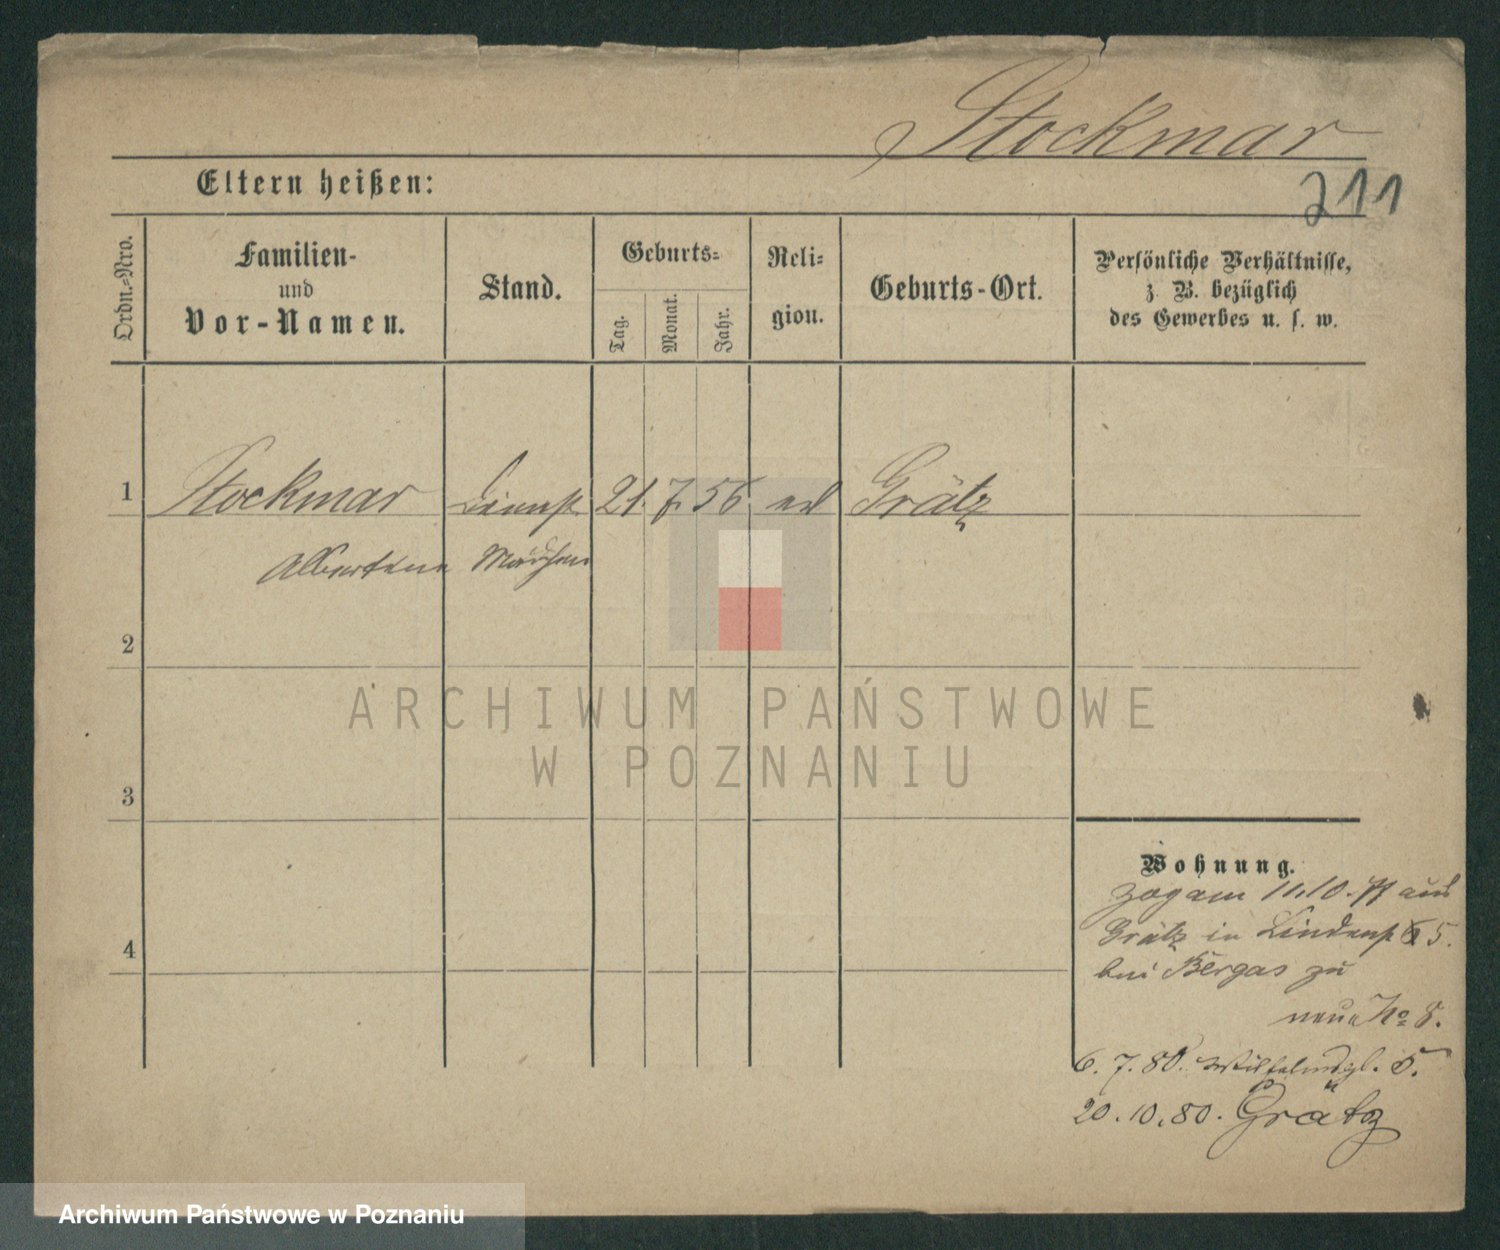 Stockmar
211
Eltern heißen:
Ordn.-Nro.
Familien-
und
Vor-Namen.
Stand.
Geburts-
Tag.
Monat.
Jahr.
Reli-
gion.
Geburts-Ort.
Persönliche Verhältnisse,
z. B. bezüglich
des Gewerbes u. s. w.
1 Stockmar Dienst 21. 7. 56 Grätz
Albertine Mädchen
2
ARCHIWUM PAŃSTWOWE
W POZNANIU
3
Wohnung.
zog am 11.10. aus
4
Grätz in Lindenst 5.
bei Bergas zu
neue No 8.
6. 7. 80. Wilhelmspl. 5.
20. 10. 80. Grätz
Archiwum Państwowe w Poznaniu